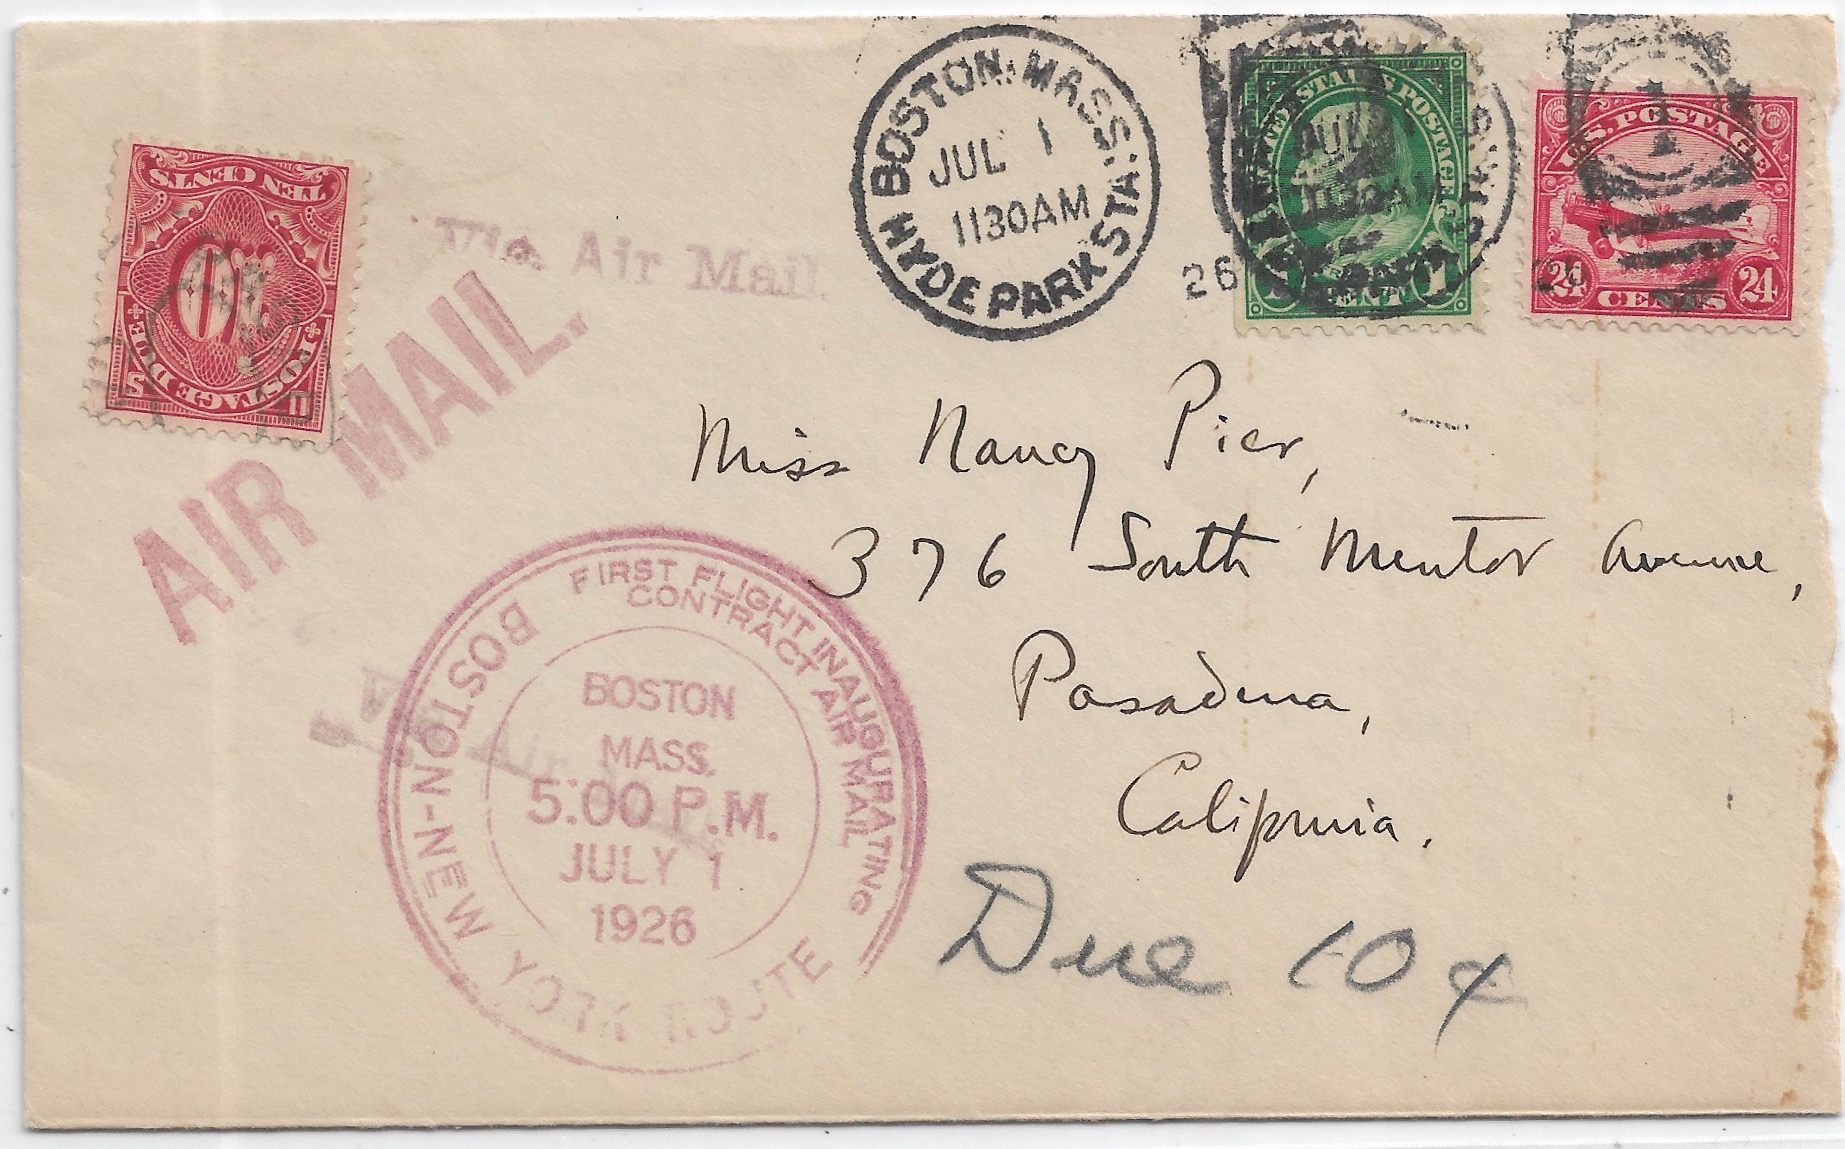 BOSTON, MASS.
HYDE PARK STA.
JUL 1
1130AM
26
UNITED STATES POSTAGE
JUL
1130AM
1 CENT 1
U.S. POSTAGE
24 CENTS 24
TEN CENTS
10
POSTAGE DUE
U S
Via Air Mail
AIR MAIL.
Miss Nancy Pier,
376 South Mentor Avenue,
Pasadena,
California.
Due 10¢
FIRST FLIGHT INAUGURATING
CONTRACT AIR MAIL
BOSTON-NEW YORK ROUTE
BOSTON
MASS.
5:00 P.M.
JULY 1
1926